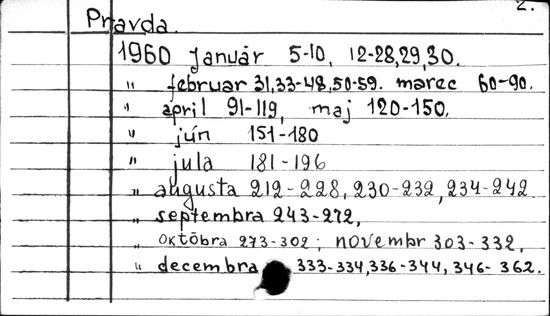 2.
Pravda.
1960 január 5-10, 12-28,29,30.
" februar 31,33-48,50-59. marec 60-90.
" april 91-119, maj 120-150.
" jún 151-180
" jula 181-196
" augusta 212-228, 230-232, 234-242
" septembra 243-272,
" októbra 273-302; novembr 303-332,
" decembra 333-334,336-344, 346-362.